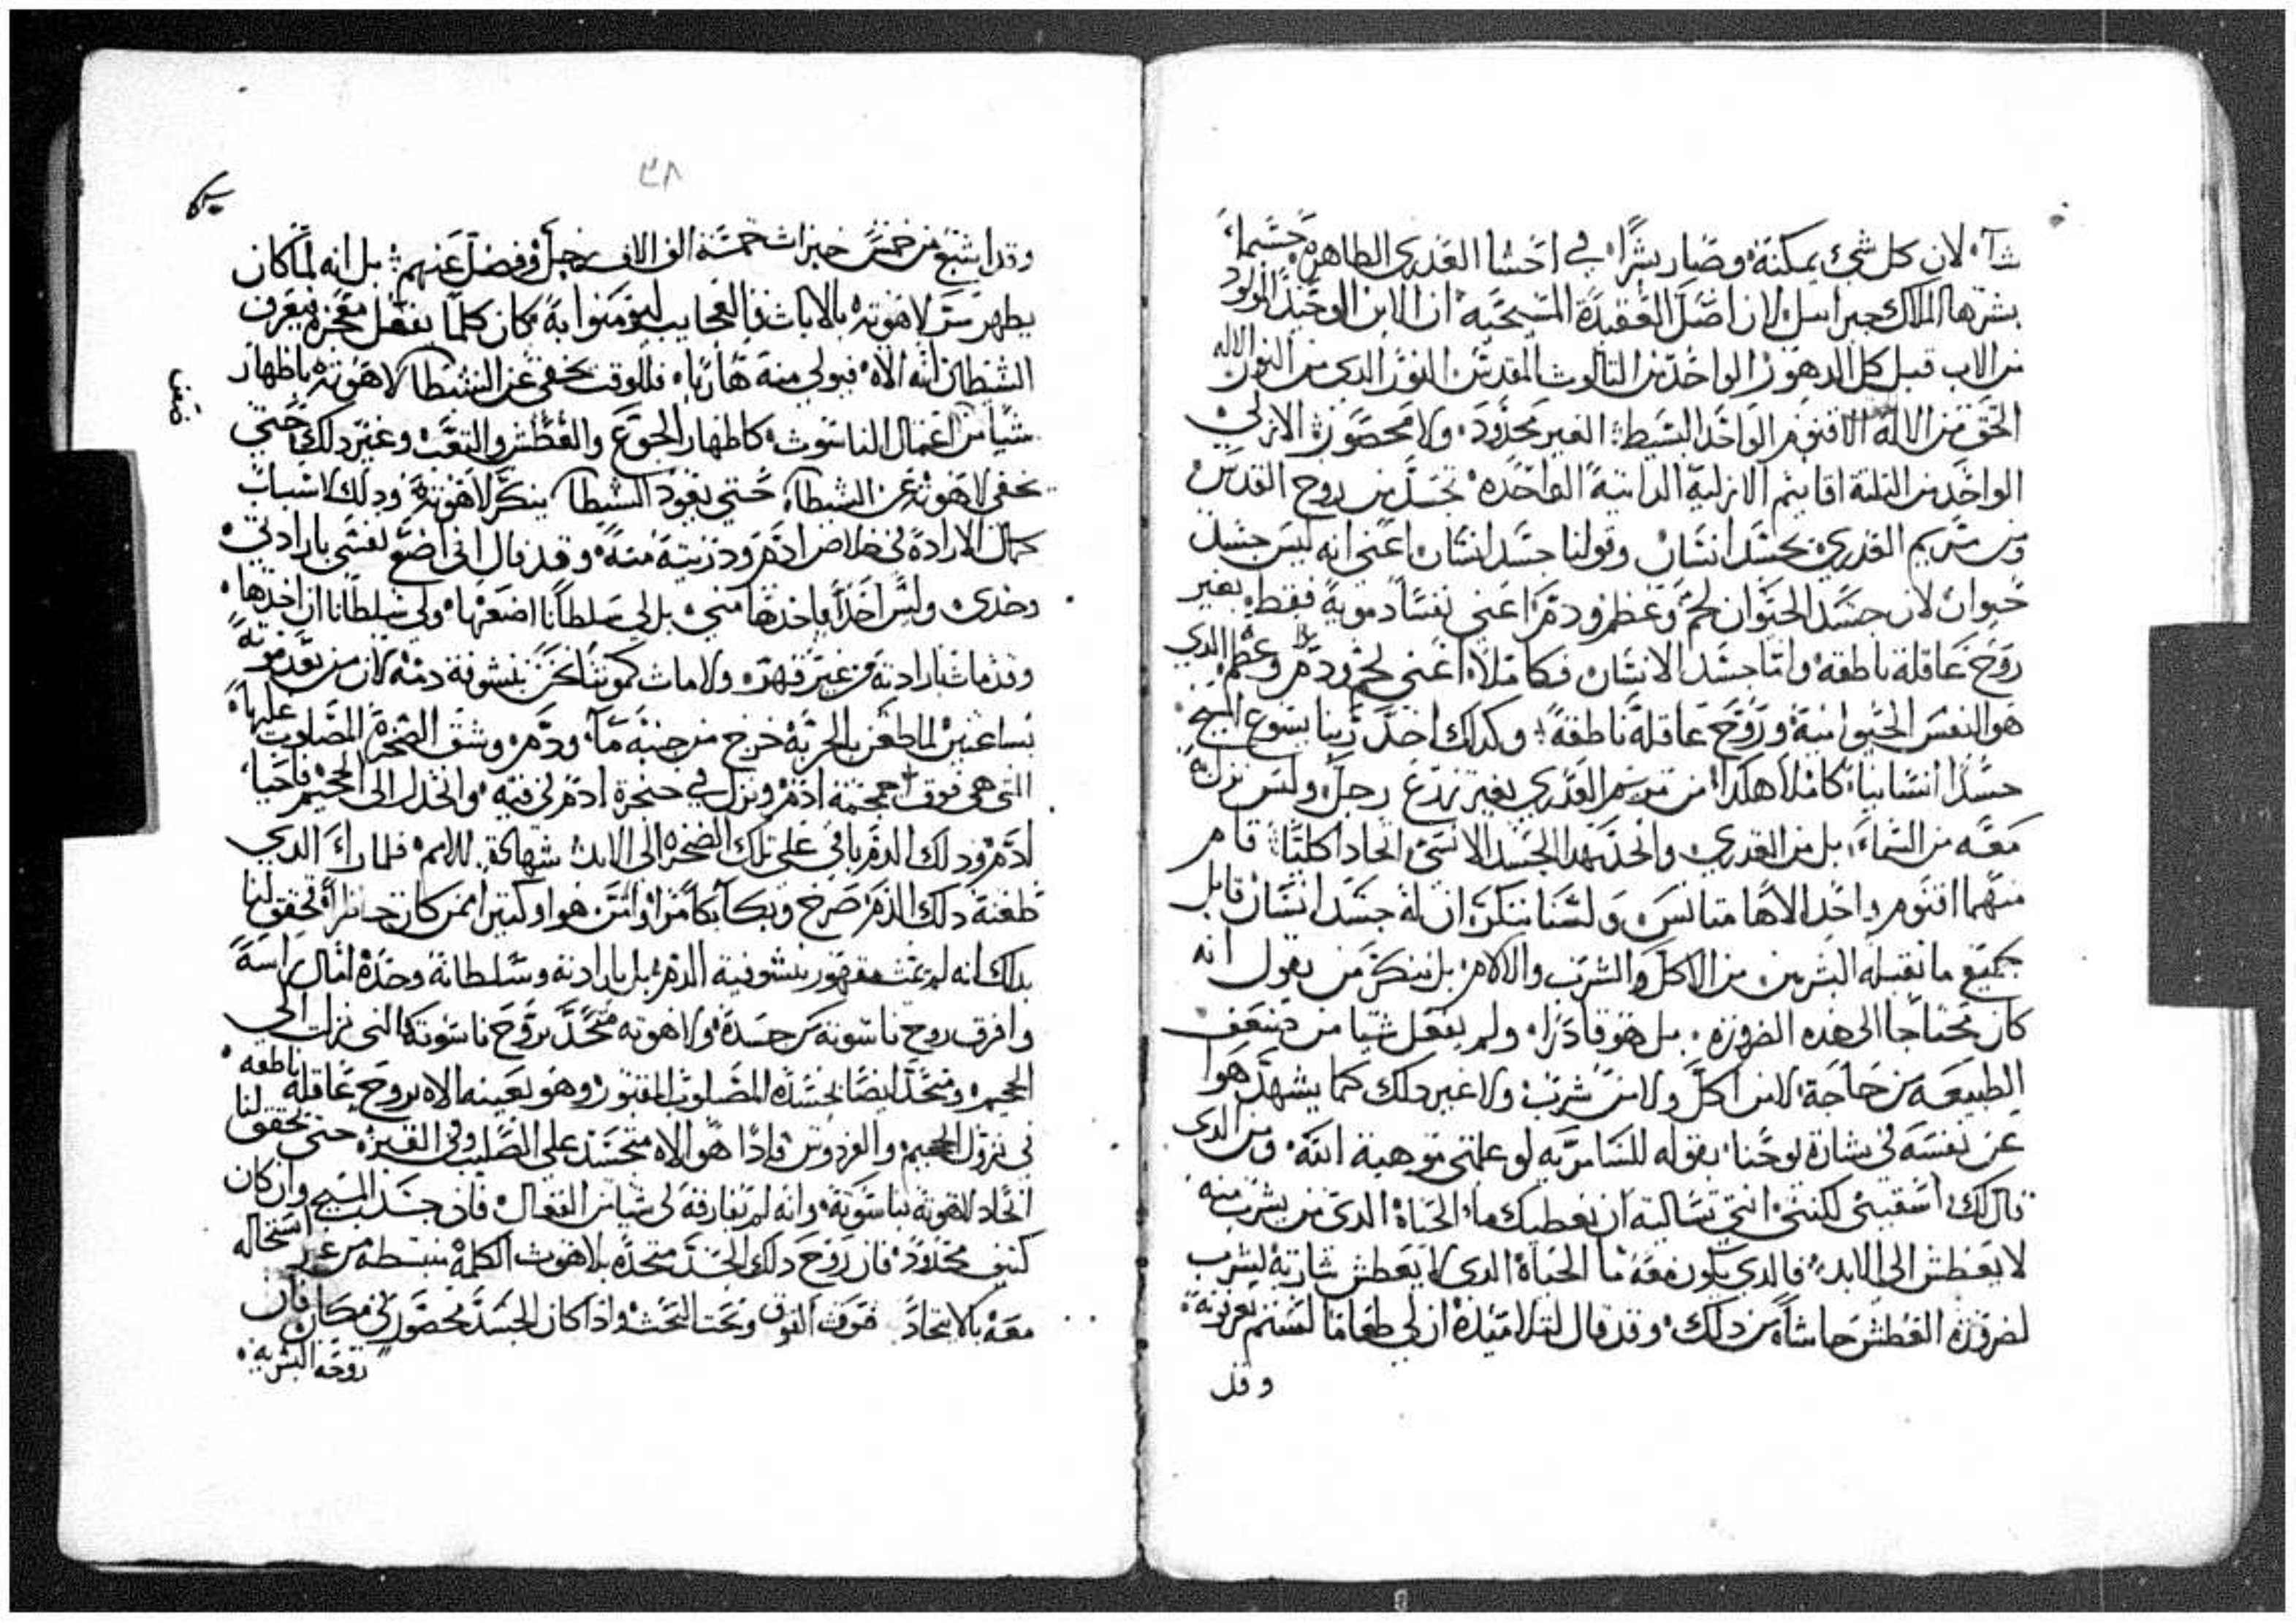 شآء لان كل شيء يمكنة وصار بشرًا في احشا العذرى الطاهرة حسبما
بشرها الملاك جبراييل لان اصل العقيدة المسيحية ان الابن الوحيد المولود
من الاب قبل كل الدهور الواحد من التالوت المقدس النور الدي من النور الاله
الحق من الاله الاقنوم الواحد البسيط الغير محدود ولا محصور الازلي
الواحد من التلتة اقانيم الازلية الداتية الواحده تجسد من روح القدس
ومن مريم العدري بجسد انسان وقولنا جسد انسان اعني انه ليس جسد
حيوان لان جسد الحيوان لحم وعظم ودم اعني نفسًا دموية فقط بغير
روح عاقلة ناطقة واما جسد الانسان فكاملا اعني لحم ودم وعظم الدي
هو النفس الحيوانية وروح عاقلة ناطقة وكدلك اخد ربنا يسوع المسيح
جسدا انسانيا كاملا هكدا من مريم العدري بغير زرع رجل وليس نزل به
معه من السماء بل من العدري واتحد بهدا الجسد الانسي اتحادا كليًا قام
منهما اقنوم واحد الاها متانس ولسنا ننكر ان له جسد انسان قابل
جميع ما تقبله البشريين من الاكل والشرب والالام بل ننكر من يقول انه
كان محتاجا الى هده الضروره بل هو قادرا ولم يفعل شيا من ضعف
الطبيعة من حاجة لا من اكل ولا من شرب ولا غير دلك كما يشهد هوا
عن نفسه في بشارة يوحنا بقوله للسامريه لو علمتي موهبة الله ومن الدي
قال لك اسقيني لكنتي انتي تساليه ان يعطيك ما الحياة الدي من يشرب منه
لا يعطش الى الابد فالدي يكون معه ما الحياة الدي لا يعطش شاربه ليشرب
لضرورة العطش حاشاه من دلك وقد قال لتلاميده ان لي طعاما لستم تعرفونه
وقد
٣٨
وقد اشبع من خمس خبزات خمسة الف الاف رجل وفضل عنهم بل انه لما كان
يظهر سر لاهوته بالايات والعجايب ليومنوا به كان كلما يفعل معجزه فيعرف
الشيطان انه الاه فيولي منه هاربا فللوقت يخفي عن الشيطا لاهوته باظهار
شيا من اعمال الناسوت كاظهار الجوع والعطش والتعب وغير دلك حتي
يخفي لاهوته عن الشيطا حتي يعود الشيطا ينكر لاهوته ودلك لاسباب
كمال الارادة في خلاص ادم ودريته منه وقد قال اني اضع نفسي بارادتي
وحدي وليس احدا ياخدها مني بل لي سلطانا اضعها ولي سلطانا ان اخدها
وقد مات بارادته من غير قهره ولا مات كموتنا نحن بنشوفة دمه لان من بعد موته
بساعتين لما طعن بالحربة خرج من جنبه مآء ودم وشق الصخرة المصلوب عليها
التي هي فوق جمجمة ادم ونزل في حنجرة ادم في فيه وانحدر الى الجحيم فاحيا
ادم ودلك الدم باقي على تلك الصخرة الى الابد شهادة للامم فلما راى الدي
طعنه دلك الدم صرخ وبكا بكا مرا وامن هو وكتير ممن كان حاضرا تحقق لنا
بدلك انه لم يمت مقهور بنشوفية الدم بل بارادته وسلطانة وحده امال راسه
وافرق روح ناسوته من جسده ولاهوته متحد بروح ناسوته التي نزلت الى
الجحيم ومتحد ايضا بجسده المصلوب المقبور وهو بعينه الاه بروح عاقلة ناطقه
في نزول الجحيم والفردوس فادا هو الاه متجسد على الصليب وفي القبر حتى تحقق لنا
اتحاد لاهوته بناسوته وانه لم يفارقه في شيا من الفعال فان جسد المسيح وان كان
كتيف محدود فان روح دلك الجسد متحده بلاهوت الكلمة منبسطه من غير استحاله
معه بالاتحاد فوق الفوق وتحت التحت وادا كان الجسد محصور في مكان فان
روحه البشريه
ضعف